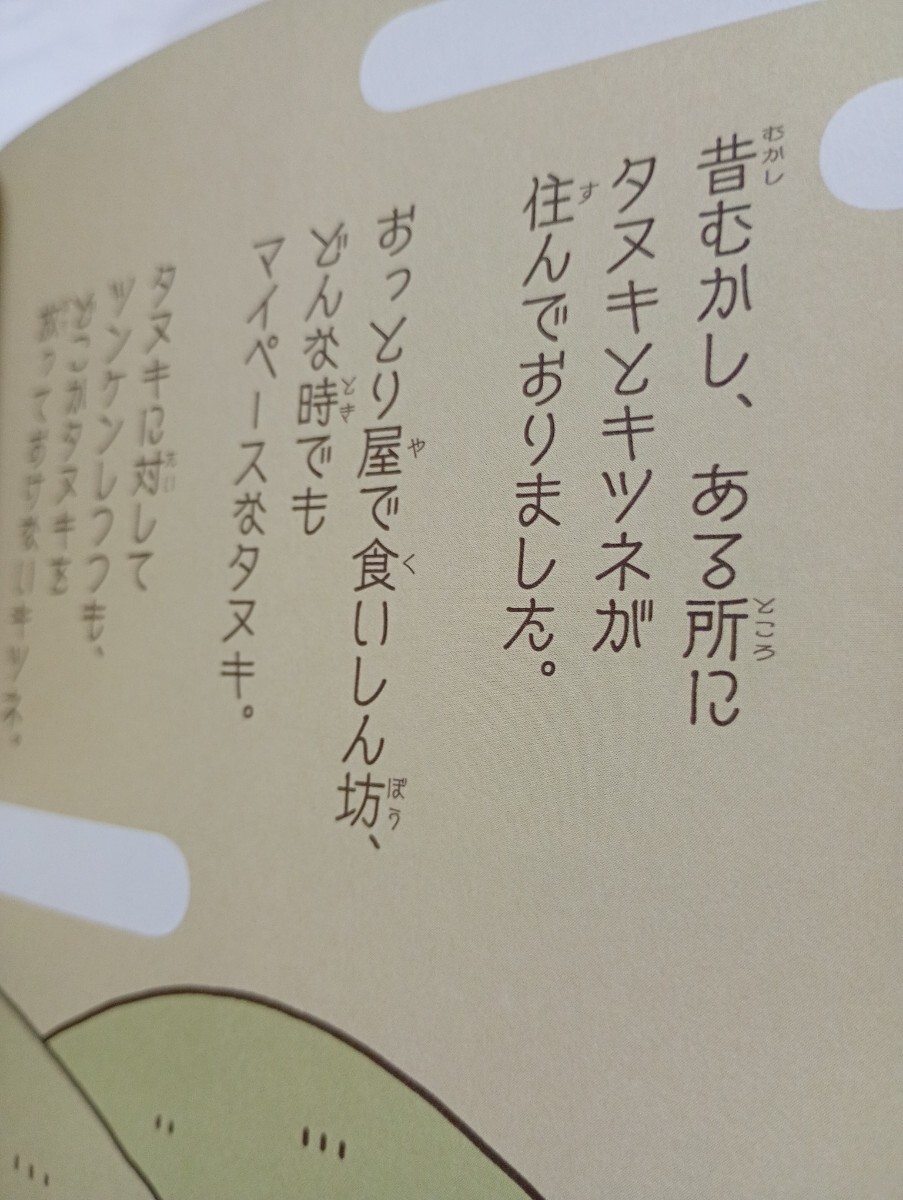 昔むかし、ある所に
タヌキとキツネが
住んでおりました。
おっとり屋で食いしん坊、
どんな時でも
マイペースなタヌキ。
タヌキに対して
ツンケンしつつも、
どこかタヌキを
放っておけないキツネ。